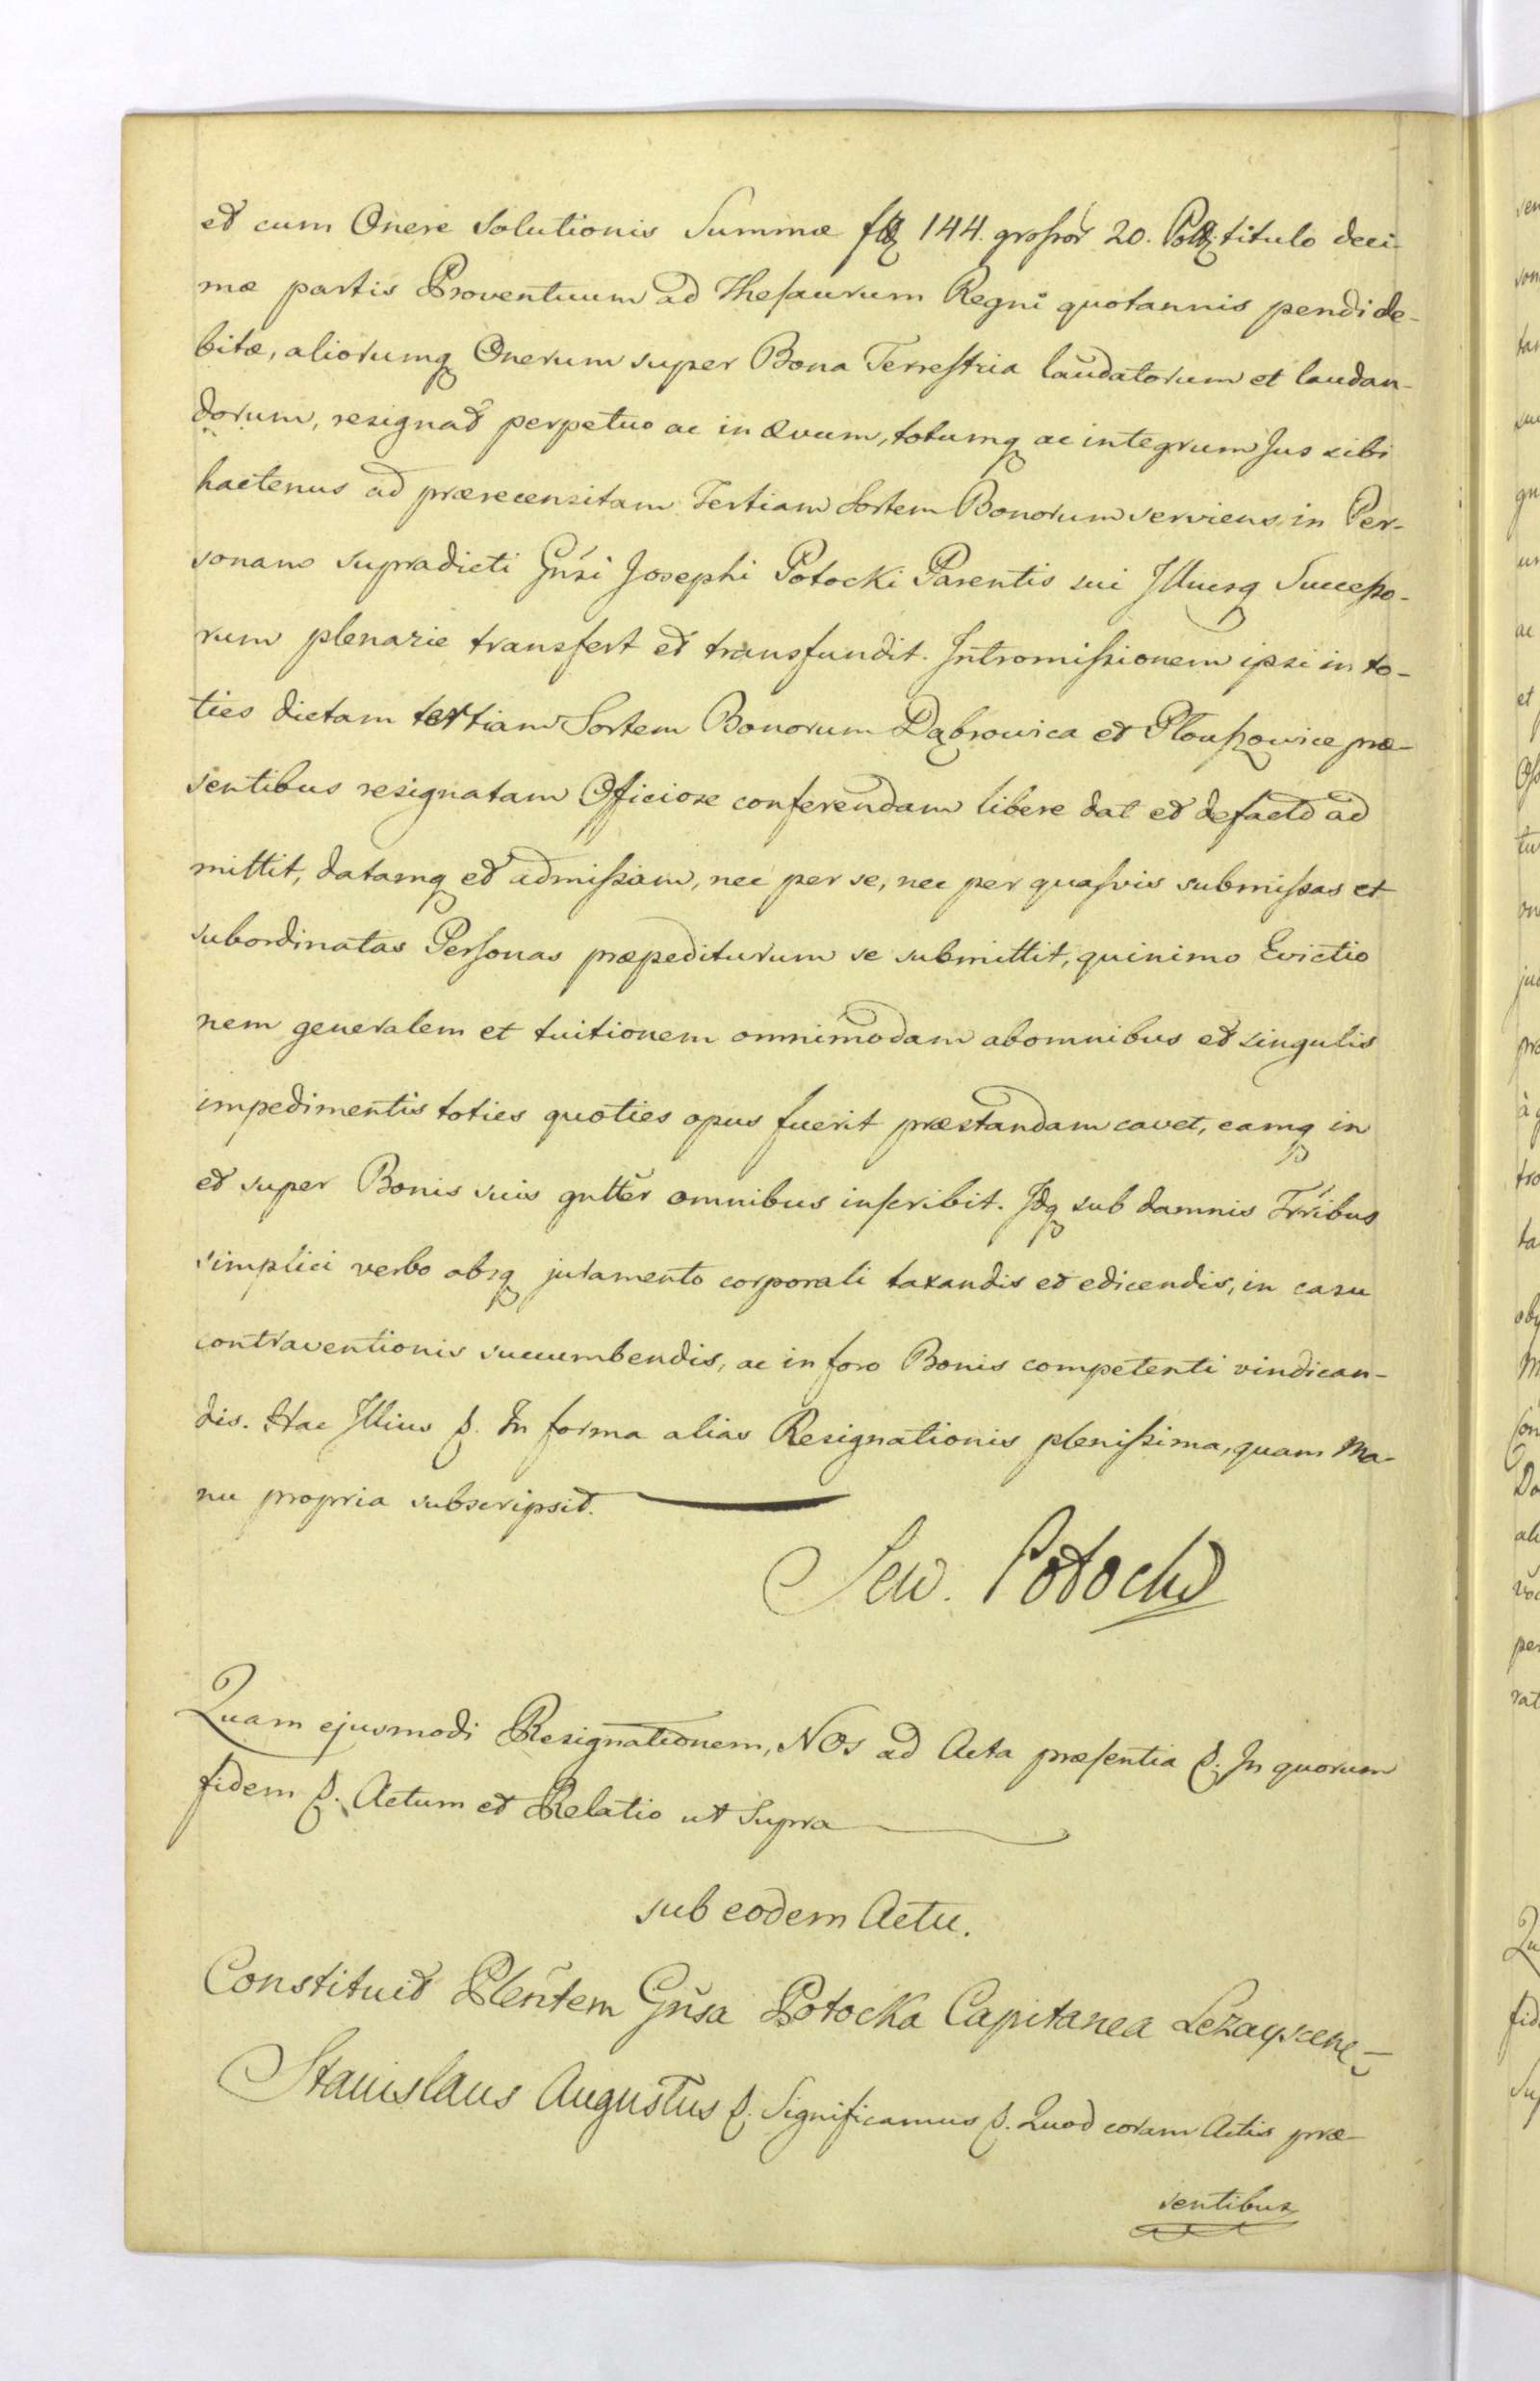 et cum Onere Solutionis Summæ flq 144. grossor 20. Pollq titulo deci-
mæ partis Proventuum ad Thesaurum Regni quotannis pendi de-
bitæ, aliorumq Onerum super Bona Terrestria laudatorum et laudan-
dorum, resignat perpetuo ac in Ævum, totumq ac integrum Jus sibi
hactenus ad præerecensitam Tertiam Sortem Bonorum serviens, in Per-
sonam supradicti Gnsi Josephi Potocki Parentis sui Illiusq Successo-
rum plenarie transfert et transfundit. Intromissionem ipsi in to-
ties dictam tertiam Sortem Bonorum Dąbrowica et Płouszowice præ-
sentibus resignatam Officiose conferendam libere dat et de facto ad
mittit, datamq et admissam, nec per se, nec per quasvis submissas et
subordinatas Personas præpediturum se submittit, quinimo Evictio
nem generalem et tuitionem omnimodam ab omnibus et singulis
impedimentis toties quoties opus fuerit præstandam cavet, eamq in
et super Bonis suis gnltter omnibus inscribit. Idq sub damnis Trribus
simplici verbo absq juramento corporali taxandis et edicendis, in casu
contraventionis succumbendis, ac in foro Bonis competenti vindican-
dis. Hac Illius p. In forma alias Resignationis plenissima, quam Ma-
nu propria subscripsit.
Sew. Potocki
Quam ejusmodi Resignationem, NOs ad Acta præsentia p. In quorum
fidem p. Actum et Relatio ut Supra
sub eodem Actu.
Constituit Plentem Gnsa Potocka Capitanea Leżayscen-
Stanislaus Augustus p. Significamus p. Quod coram Actis præ-
sentibus